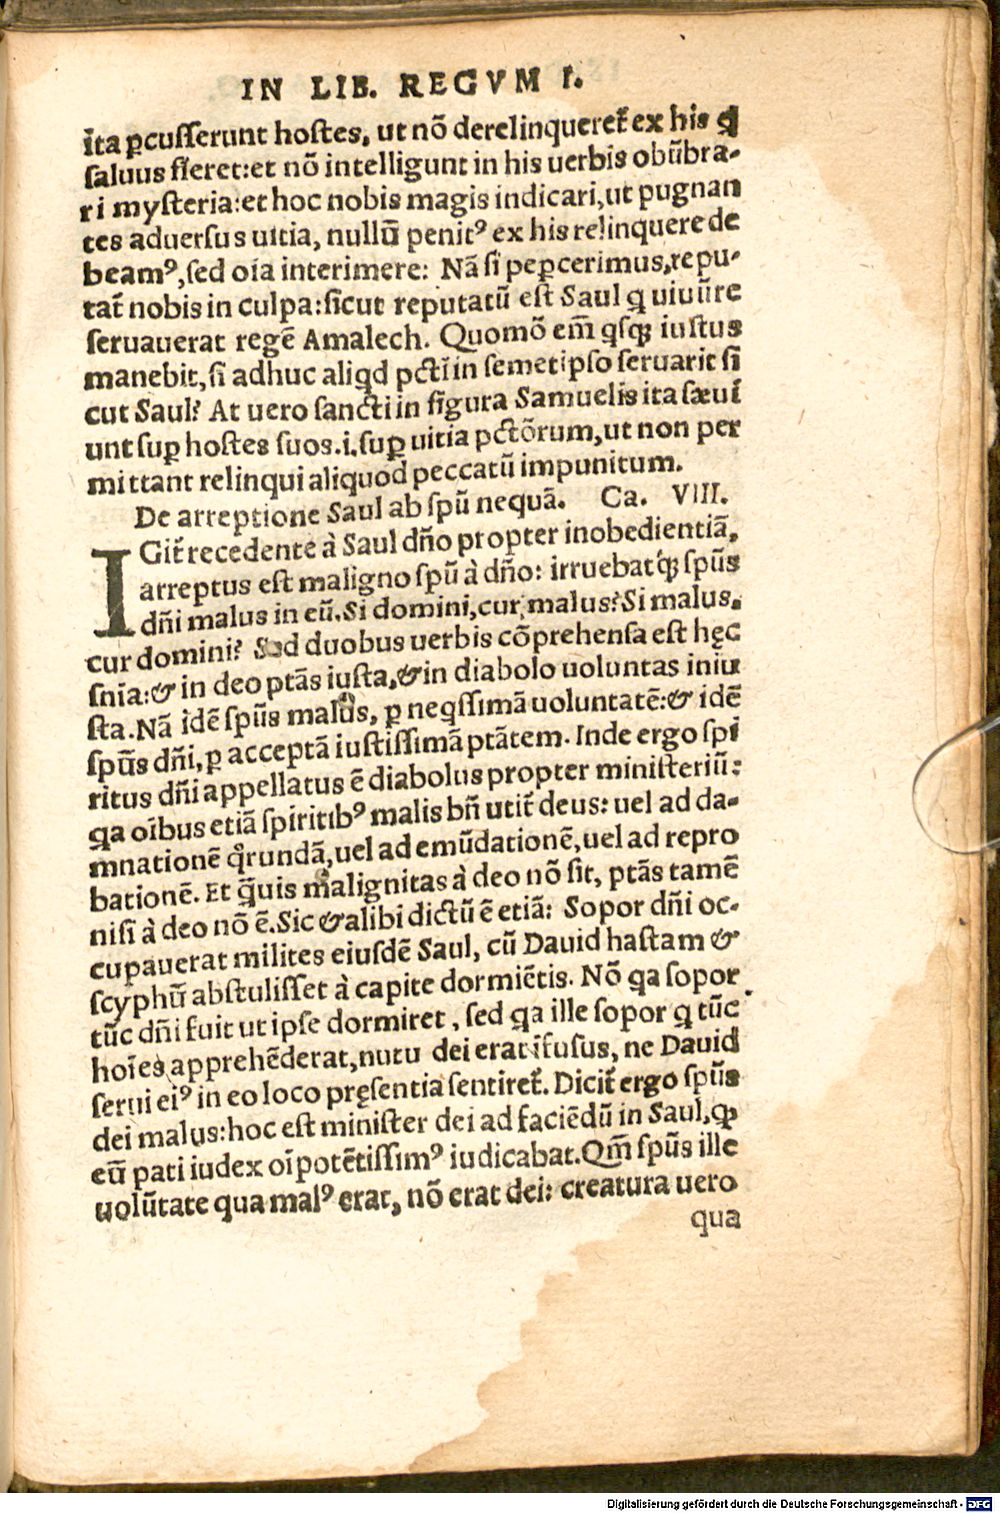 IN LIB. REGVM I.
ita ꝑcusserunt hostes, ut nõ derelinqueret᷑ ex his q̃
saluus fieret:et nõ intelligunt in his uerbis obũbra-
ri mysteria:et hoc nobis magis indicari,ut pugnan
tes aduersus uitia, nullũ penitꝰ ex his relinquere de
beamꝰ,sed oĩa interimere: Nã si peꝑcerimus,repu-
tat᷑ nobis in culpa:sicut reputatũ est Saul ꝙ uiuũre
seruauerat regẽ Amalech. Quomõ em̃ qsqꝫ iustus
manebit,si adhuc aliqd pctĩ in semetipso seruarit si
cut Saul? At uero sancti in figura Samuelis ita sæui
unt suꝑ hostes suos.i.suꝑ uitia pctõrum,ut non per
mittant relinqui aliquod peccatũ impunitum.
De arreptione Saul ab spũ nequã. Ca. VIII.
IGit᷑ recedente à Saul dño propter inobedientiã,
arreptus est maligno spũ à dño: irruebat qꝫ spũs
dñi malus in eũ.Si domini,cur malus? Si malus,
cur domini? Sed duobus uerbis cõprehensa est hęc
snĩa:& in deo ptãs iusta,& in diabolo uoluntas iniu
sta.Nã idẽ spũs malus, ꝑ neqssimã uoluntatẽ:& idẽ
spũs dñi,ꝑ acceptã iustissimã ptãtem. Inde ergo spi
ritus dñi appellatus ẽ diabolus propter ministeriũ:
qa oĩbus etiã spiritibꝰ malis bñ utit᷑ deus: uel ad da-
mnationẽ qrundã,uel ad emũdationẽ,uel ad repro
bationẽ. Et q̃uis malignitas à deo nõ sit, ptãs tamẽ
nisi à deo nõ ẽ.Sic & alibi dictũ ẽ etiã: Sopor dñi oc-
cupauerat milites eiusdẽ Saul, cũ Dauid hastam &
scyphũ abstulisset à capite dormiẽtis. Nõ qa sopor
tũc dñi fuit ut ipse dormiret, sed qa ille sopor q tũc
hoĩes apprehẽderat,nutu dei erat ĩfusus, ne Dauid
serui eiꝰ in eo loco pręsentia sentiret᷑. Dicit᷑ ergo spũs
dei malus:hoc est minister dei ad faciẽdũ in Saul,ꝙ
eũ pati iudex oĩpotẽtissimꝰ iudicabat.Qm̃ spũs ille
uolũtate qua malꝰ erat, nõ erat dei: creatura uero
qua
Digitalisierung gefördert durch die Deutsche Forschungsgemeinschaft - DFG